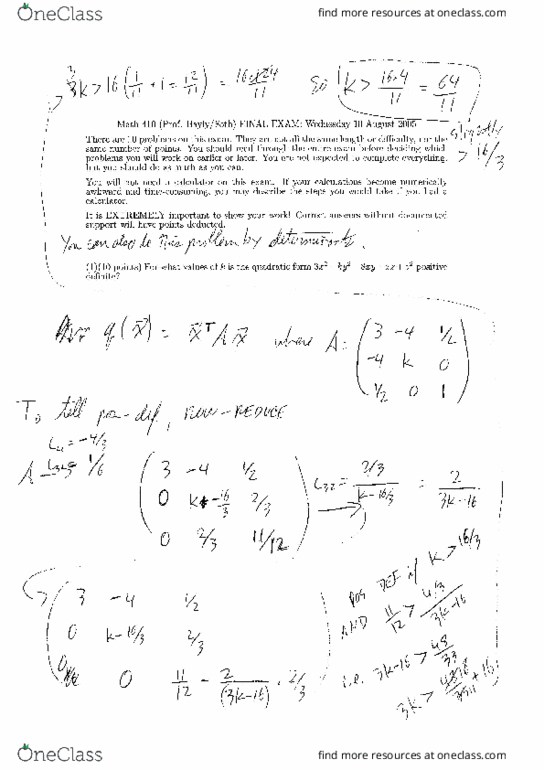 OneClass
find more resources at oneclass.com
3k > 16 ( 1/11 + 1 = 12/11 ) = 16·12/11
so k > 16·4/11 = 64/11
slightly > 16/3
Math 410 (Prof. Bayly/Seth) FINAL EXAM: Wednesday 10 August 2005
There are 10 problems on this exam. They are not all the same length or difficulty, nor the
same number of points. You should read through the entire exam before deciding which
problems you will work on earlier or later. You are not expected to complete everything,
but you should do as much as you can.
You will not need a calculator on this exam. If your calculations become numerically
awkward and time-consuming, you may describe the steps you would take if you had a
calculator.
It is EXTREMELY important to show your work! Correct answers without documented
support will have points deducted.
You can also do this problem by determinants.
(1)(10 points) For what values of k is the quadratic form 3x² ky² 8xy xz + z² positive
definite?
q(x) = xᵀAx where A =
3 -4 1/2
-4 k 0
1/2 0 1
To tell pos-def, ROW-REDUCE
L21 = -4/3
A L31 = 1/6
3 -4 1/2
0 k - 16/3 2/3
0 2/3 11/12
L32 = 2/3 / k - 16/3 = 2 / 3k-16
3 -4 1/2
0 k-16/3 2/3
0 0 11/12 - 2/(3k-16) · 2/3
POS DEF if k > 16/3
AND 11/12 > 4/3 / 3k-16
i.e. 3k-16 > 48/33
3k > + 16
OneClass
find more resources at oneclass.com